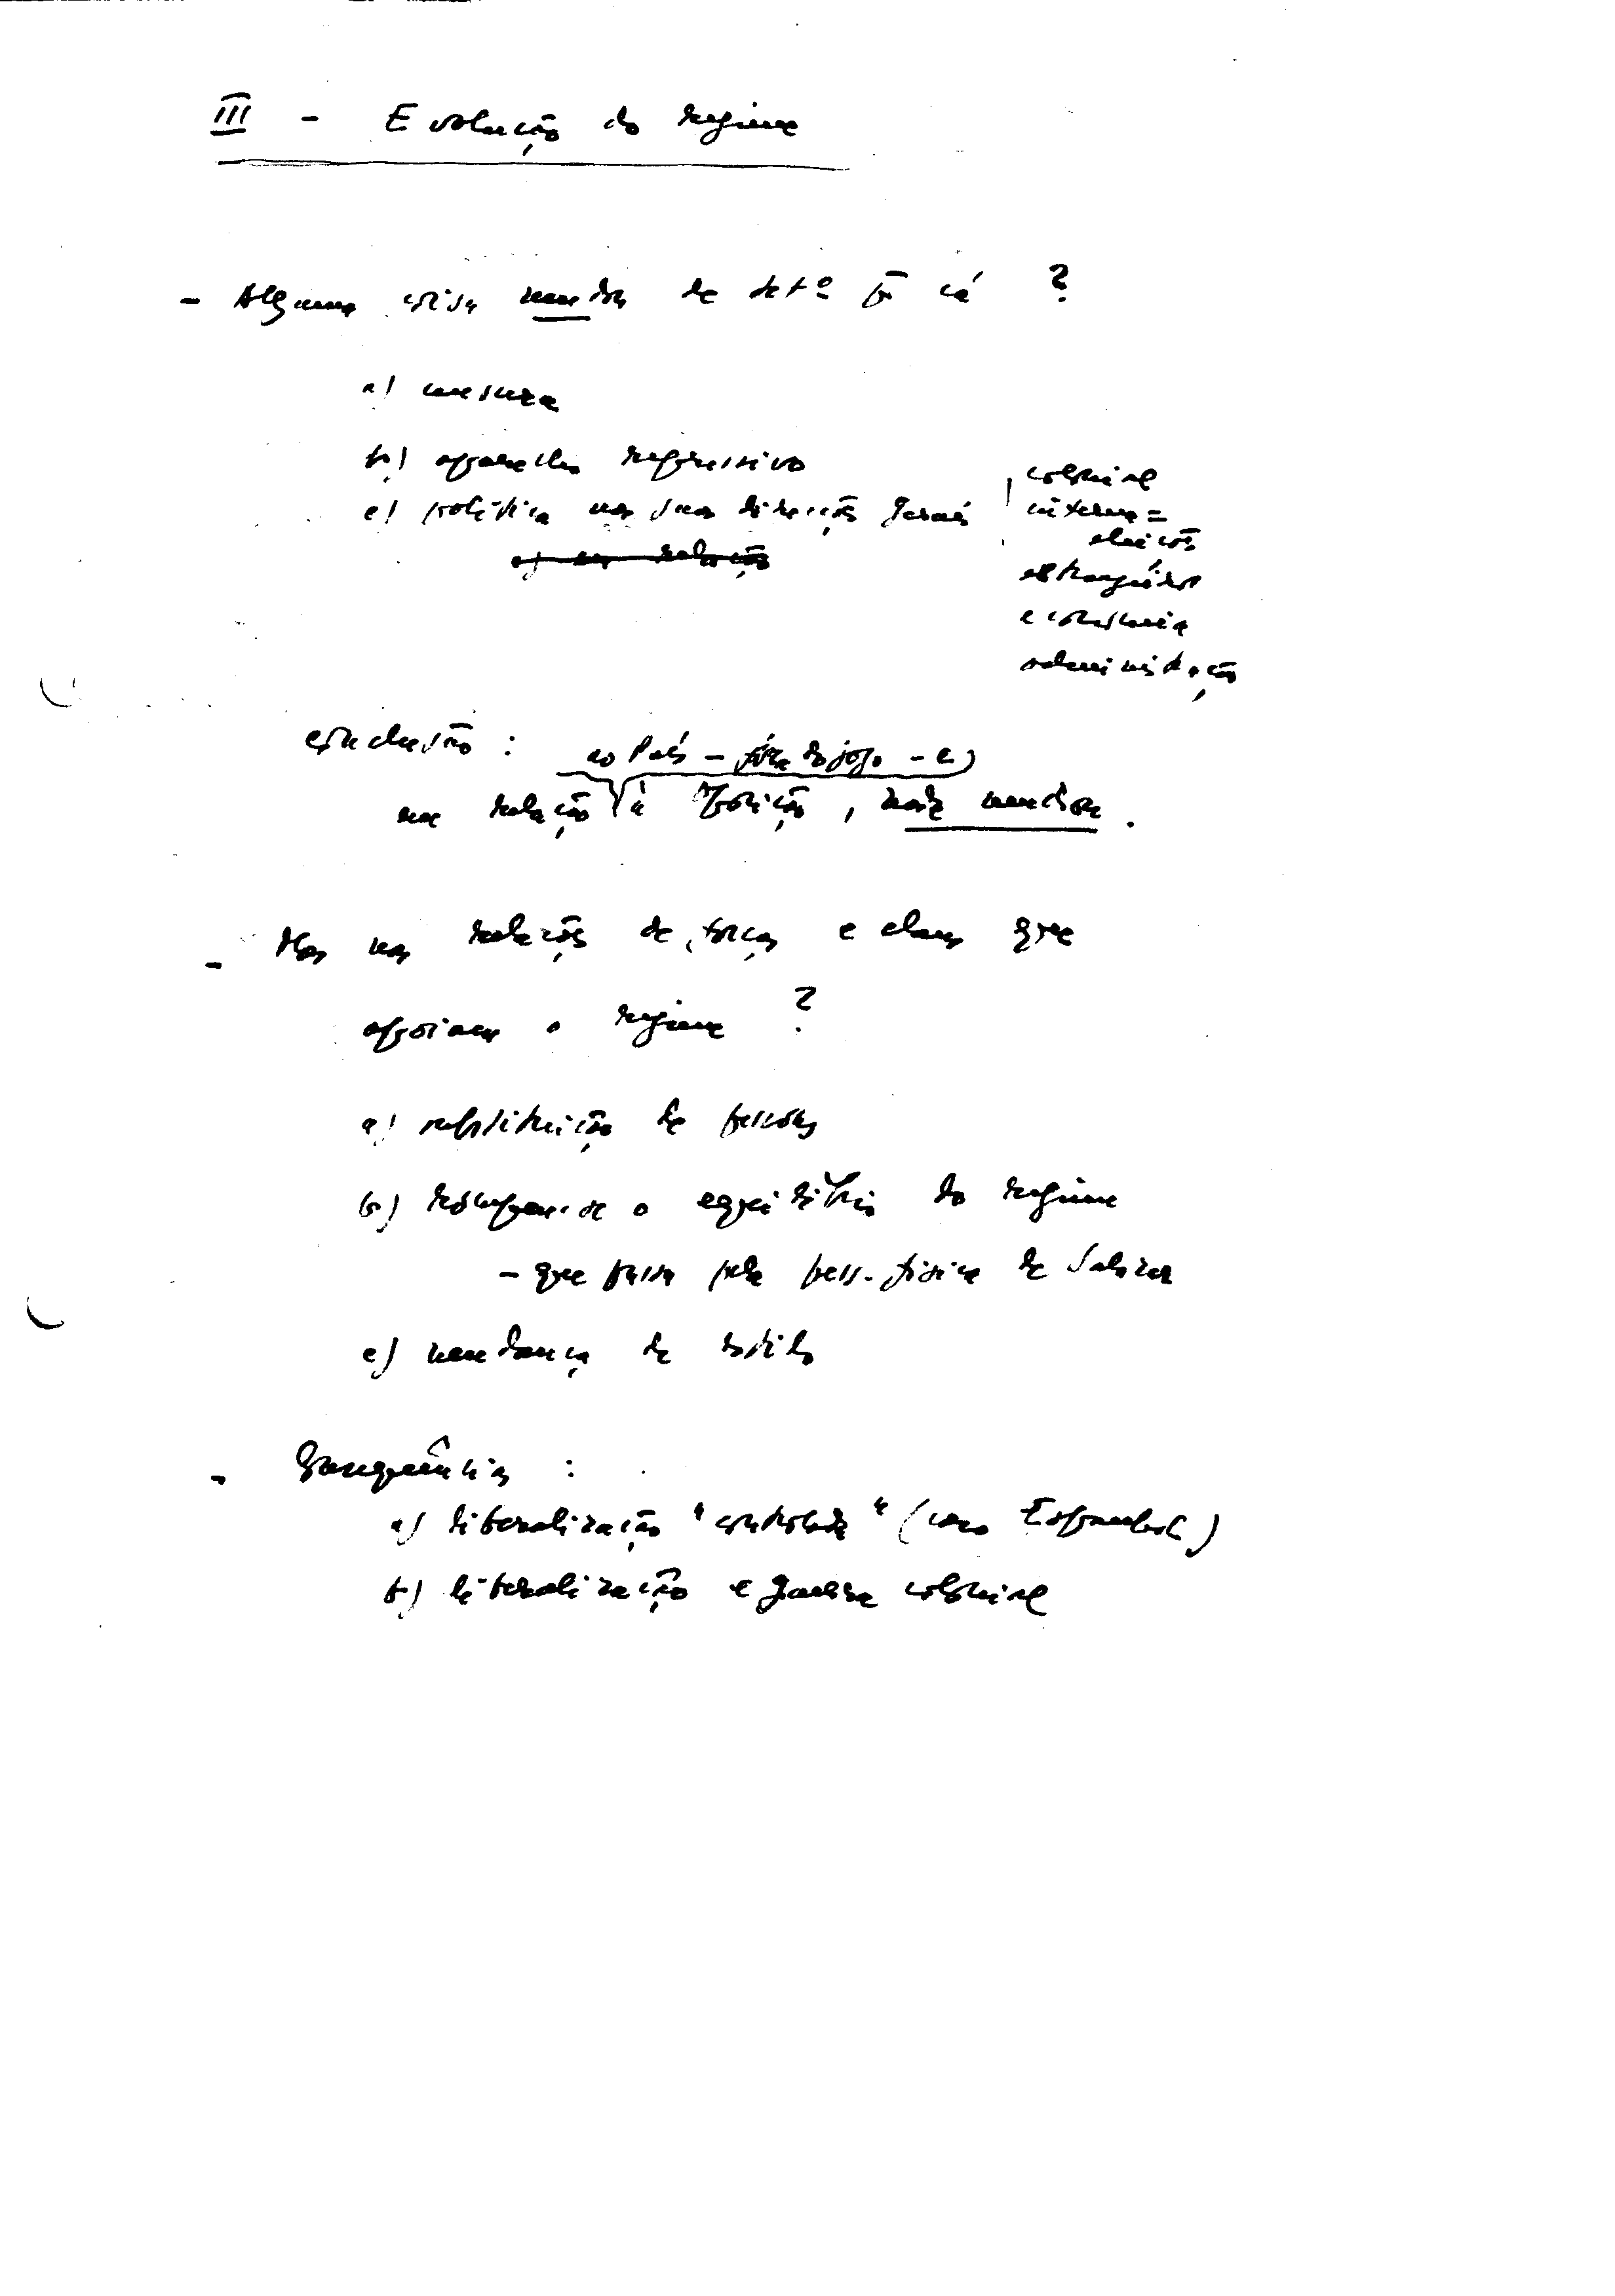 III - Evolução do regime
- Alguma coisa mudou de set.º p.ª cá ?
a) censura
b) aparelho repressivo
c) política nas suas direcções gerais
colonial
interna =
eleições
estrangeiros
economia
administração
conclusão :
ao País - fora do jogo - e
na relação à Oposição, nada mudou.
- Mas nas relações de forças e clans que
apoiam o regime ?
a) substituição de pessoas
b) o equilíbrio do regime
- que passa pela pess. física de Salazar
c) mudança de estilo
- Consequências :
a) liberalização "controlada" (caso Espanhol)
b) liberalização e guerra colonial